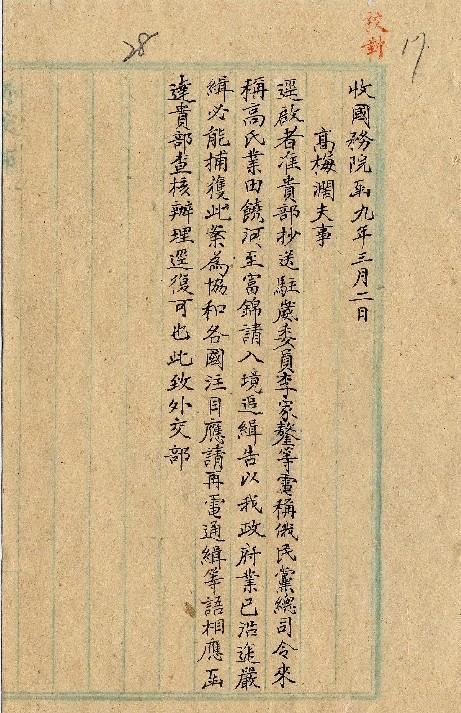 校對
17
28
收國務院函九年三月二日
高梅潤夫事
逕啟者准貴部抄送駐崴委員李家鏊等電稱俄民黨總司令來
稱高氏業由饒河至富錦請入境追緝告以我政府業已沿途嚴
緝必能捕獲此案為協和各國注目應請再電通緝等語相應函
達貴部查核辦理逕復可也此致外交部